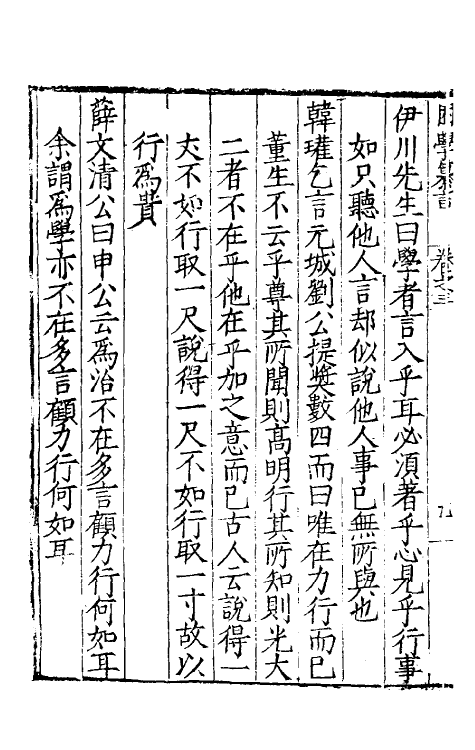 學 言 卷之三 九
伊川先生曰學者言入乎耳必須著乎心見乎行事
如只聽他人言却似說他人事已無所與也
韓瓘乞言元城劉公提獎數四而曰唯在力行而已
董生不云乎尊其所聞則高明行其所知則光大
二者不在乎他在乎加之意而已古人云說得一
丈不如行取一尺說得一尺不如行取一寸故以
行爲貴
薛文清公曰申公云爲治不在多言顧力行何如耳
余謂爲學亦不在多言顧力行何如耳